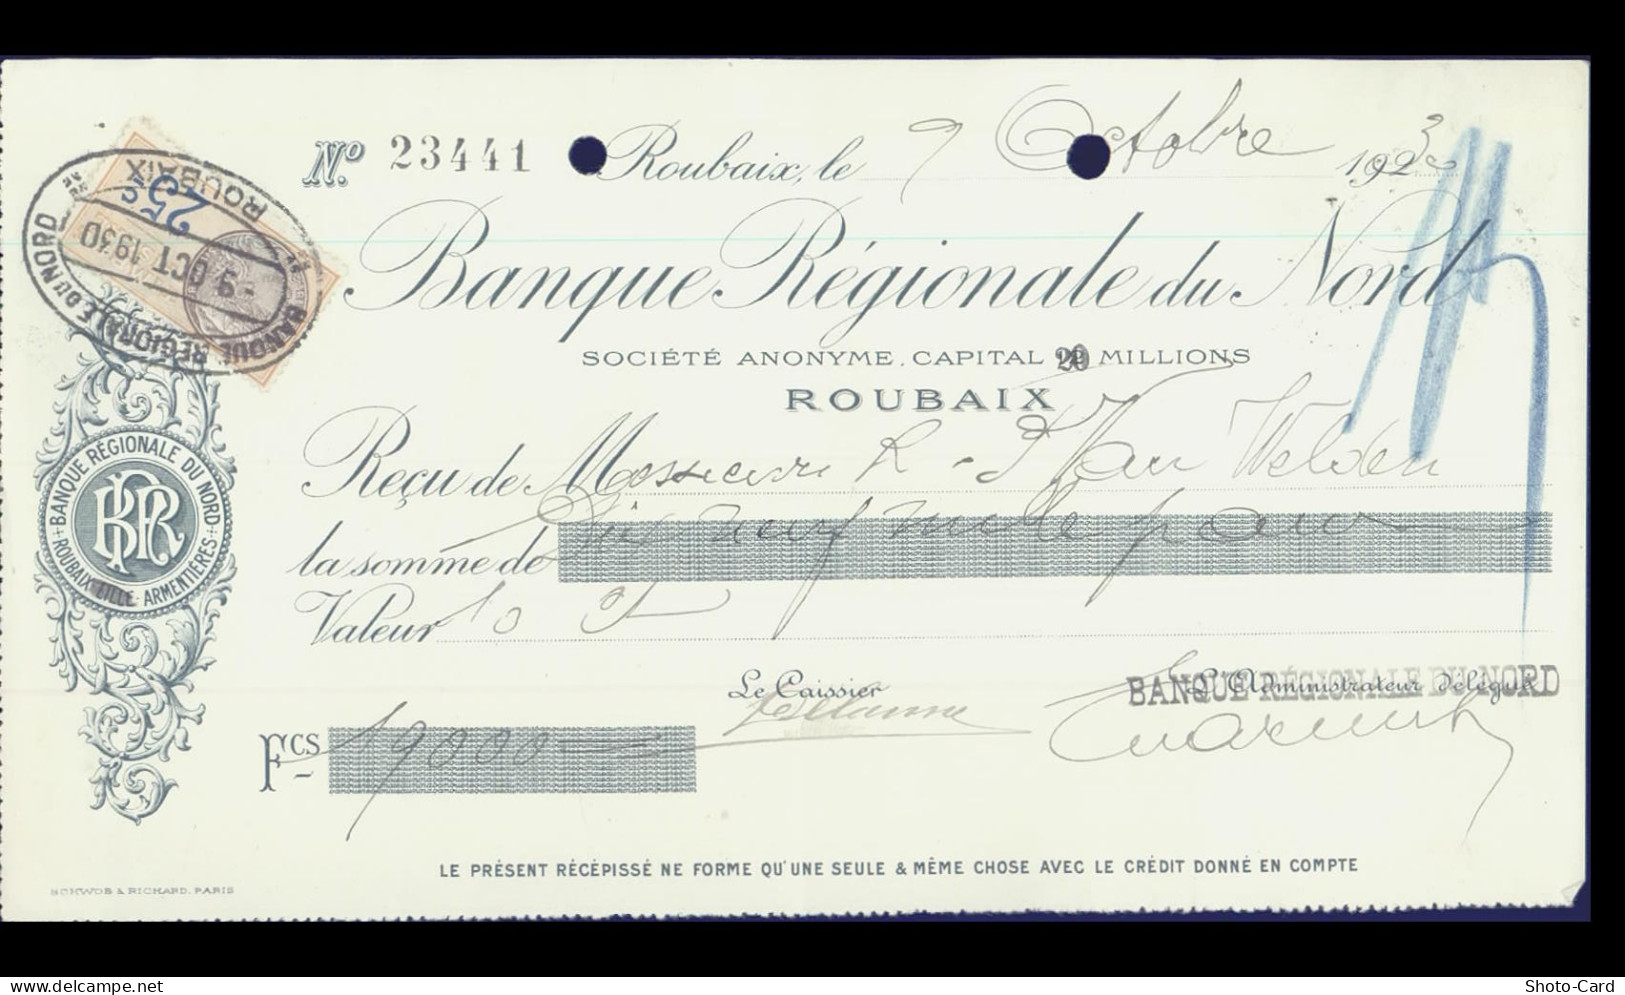 Nº 23441 Roubaix, le 9 Octobre 1930
25 c
BANQUE RÉGIONALE DU NORD
ROUBAIX
-9 OCT 1930
Banque Régionale du Nord
SOCIÉTÉ ANONYME. CAPITAL 20 MILLIONS
ROUBAIX
BANQUE RÉGIONALE DU NORD
ROUBAIX-LILLE-ARMENTIÈRES
BRN
Reçu de Messieurs R & J Van Welden
la somme de Dix neuf mille francs
Valeur 10
Le Caissier L'Administrateur délégué
BANQUE RÉGIONALE DU NORD
Fcs 19000
LE PRÉSENT RÉCÉPISSÉ NE FORME QU'UNE SEULE & MÊME CHOSE AVEC LE CRÉDIT DONNÉ EN COMPTE
SCHWOB & RICHARD. PARIS
delcampe.net
Shoto-Card